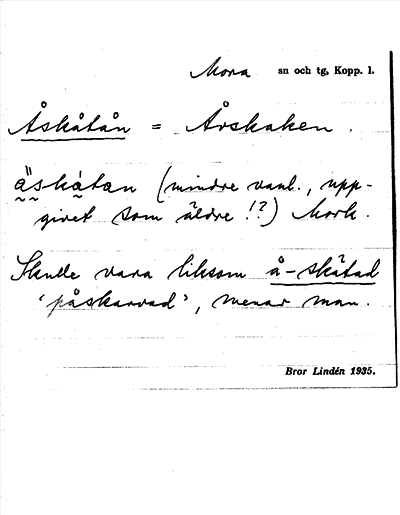 Mora sn och tg, Kopp. l.
Åskåtån = Årskaken.
äskåtan (mindre vanl., upp-
givet som äldre!?) Mork.
Skulle vara liksom å-skåtad
'påskarvad', menar man.
Bror Lindén 1935.